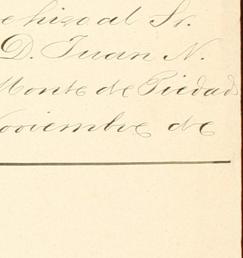 e hizo al Sr.
D. Juan N.
Monte de Piedad
Noviembre de